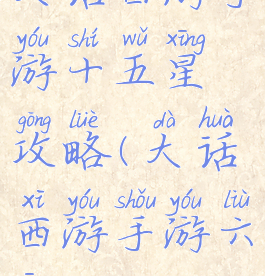 yóu shí wǔ xīng
游十五星
gōng lüè dà huà
攻略(大话
xī yóu shǒu yóu liù
西游手游六